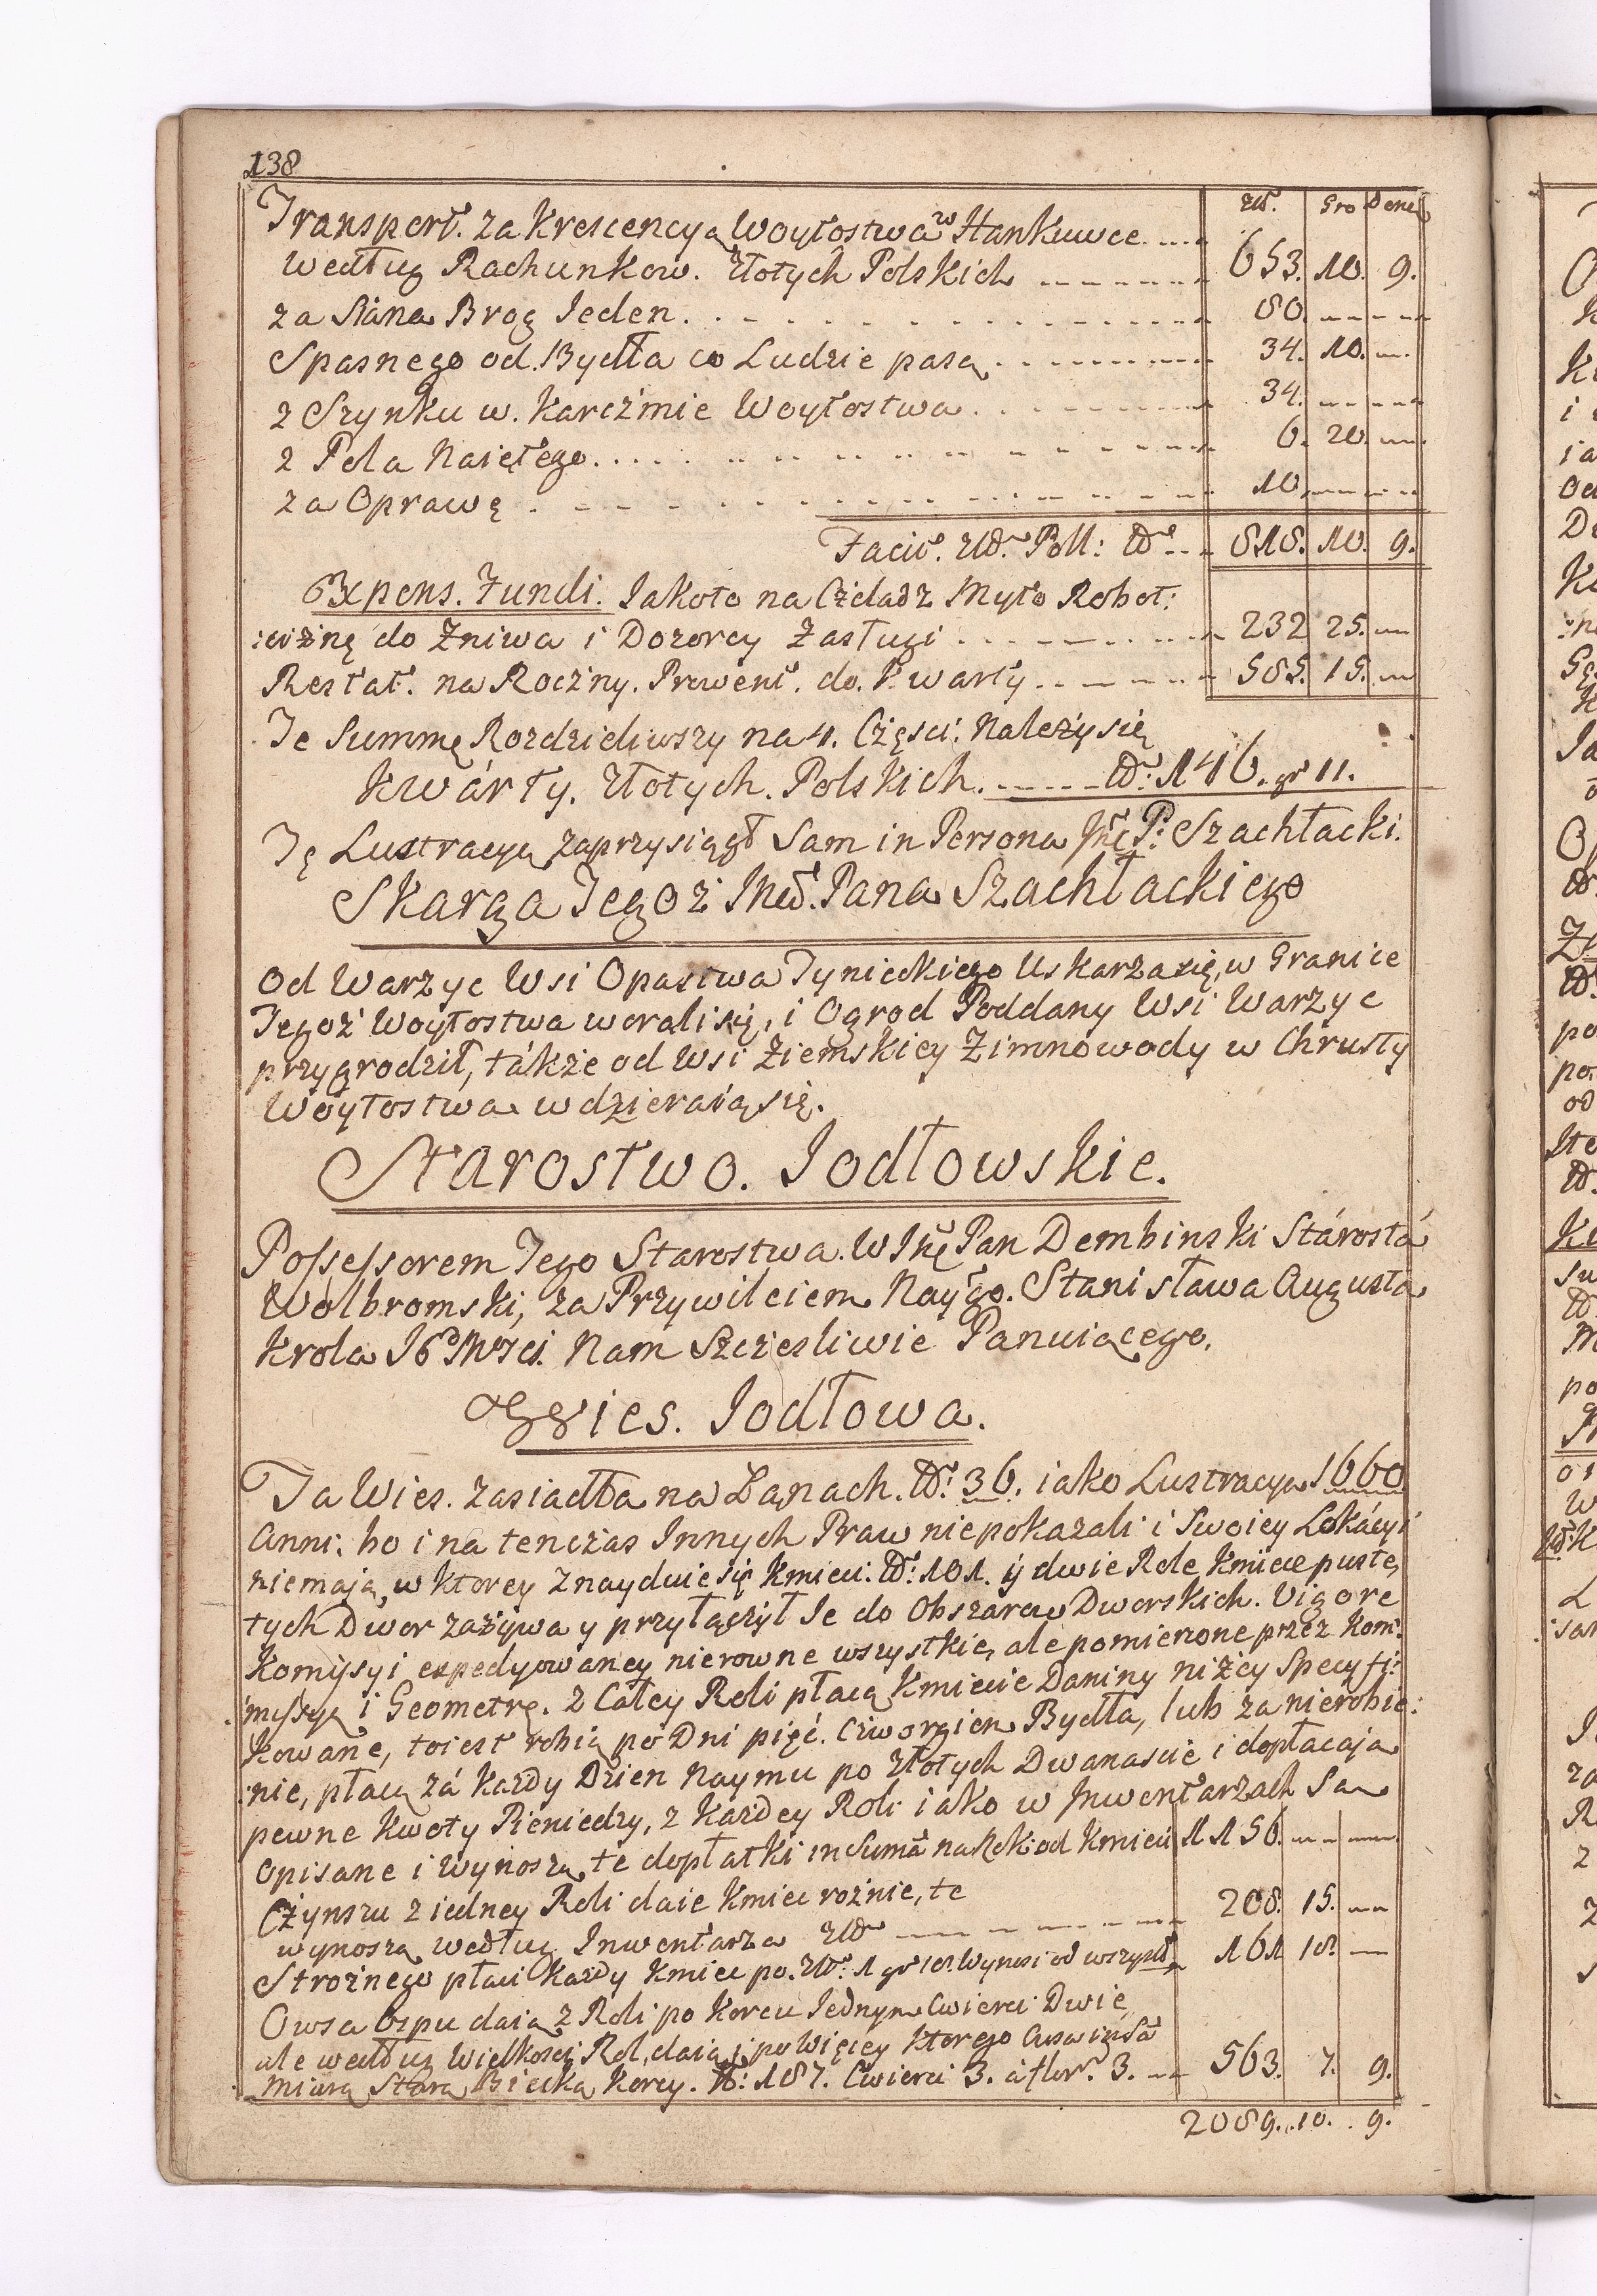 138
Zł. Gro Dena
Transport. za Krescencyą Woytostwa w Hankuwce ....
według Rachunkow. Złotych Polskich ....... 653. 10. 9.
za Siana Brog Ieden. ....... 80. -----
Spasnego od. Bydła co Ludzie pasą. ....... 34. 10. --.
z Szynku w. Karczmie Woytostwa. ....... 34. -----
z Pola Naiętego. ....... 6. 20. --.
za Oprawę ....... 10. -----
Facit. Zł. Poll: Nr. .. 818. 10. 9.
Expens. Fundi. Iakoto na Czeladz Myto Robot:
:ciznę do Żniwa i Dozorcy Zasługi ....... 232 25. --
Restat. na Roczny. Prowent. do. Kwarty ....... 585. 15. --
Te Summę Rozdzieliwszy na 4. Częsci: Należy się
Kwárty. Złotych. Polskich. ....... Nr. 146. gr 11.
Tę Lustracyą zaprzysiągł Sam in Persona Jmć P: Szachłacki.
Skarga Tegoż Imć. Pana Szachłackiego
Od Warzyc Wsi Opastwa Tynieckiego Uskarza się, w Granice
Tegoż Woytostwa worali się, i Ogrod Poddany Wsi Warzyc
przygrodził, tákże od Wsi Ziemskiey Zimnowody w Chrusty
Woytostwa wdzieraią się.
Starostwo. Iodłowskie.
Possessorem Tego Starostwa. W Imć Pan Dembinski Stárostá
Wolbromski, za Przywileiem Nayżgo. Stanisława Augusta
Krola Ie Mrsci. Nam Szczesliwie Panuiącego.
Wies. Iodłowa.
Ta Wies. zasiadła na Łanach. Nr. 36. iako Lustracya 1660
Anni: bo i na tenczas Innych Praw niepokazali i Swoiey Lokácyi
niemaią, w Ktorey Znayduie się Kmieci: Nr: 101. ÿ dwie Role Kmiece puste,
tych Dwor zażywa y przyłączył Ie do Obszarow Dworskich. Vigore
Komisyi expedyowaney nierowne wszystkie, ale pomierzone przez Kom:
:missyą i Geometrę. z Całey Roli płacą Kmiecie Daniny niżey Specyfi:
kowane, toiest robią po Dni pięć. Czworgiem Bydła, lub za nierobie:
:nie, płacą zá Każdy Dzien Naymu po Złotych Dwanascie i dopłacaią
pewne Kwoty Pieniedzy, z Każdey Roli iako w Inwentarzach Są
opisane i wynoszą te dopłatki in Suma na Rok od Kmieci 1156. -- --
Czynszu z iedney Roli daie Kmiec rożnie, te
wynoszą według Inwentarza Zł ....... 208. 15. --
Strożnego płaci Każdy Kmiec po. Zł. 1 gr 18. Wynosi od wszystk. 161 18. --
Owsa Ospu daią z Roli po Korcu Iednym Cwierci Dwie,
ale według Wielkosci Rol, daią i po Więcey Ktorego Owsa in Sa
miarą Stárą Biecką Korcy. Nr: 187. Cwierci 3. á flor. 3. -- 563. 7. 9.
2089. 10. . 9.